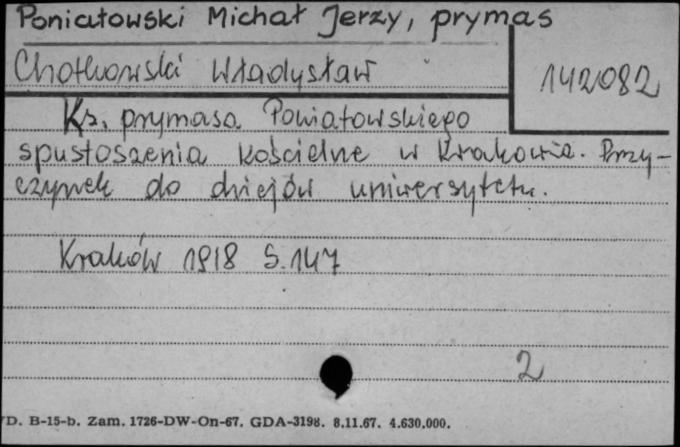 Poniatowski Michał Jerzy, prymas
Chotkowski Władysław
142082
Ks. prymasa Poniatowskiego
spustoszenia kościelne w Krakowie. Przy-
czynek do dziejów uniwersytetu.
Kraków 1918 S. 147
2
D. B-15-b. Zam. 1726-DW-On-67. GDA-3198. 8.11.67. 4.630.000.